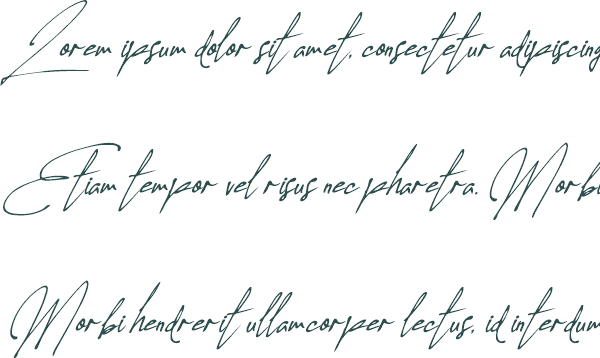 Lorem ipsum dolor sit amet, consectetur adipiscing
Etiam tempor vel risus nec pharetra. Morbi
Morbi hendrerit ullamcorper lectus, id interdum